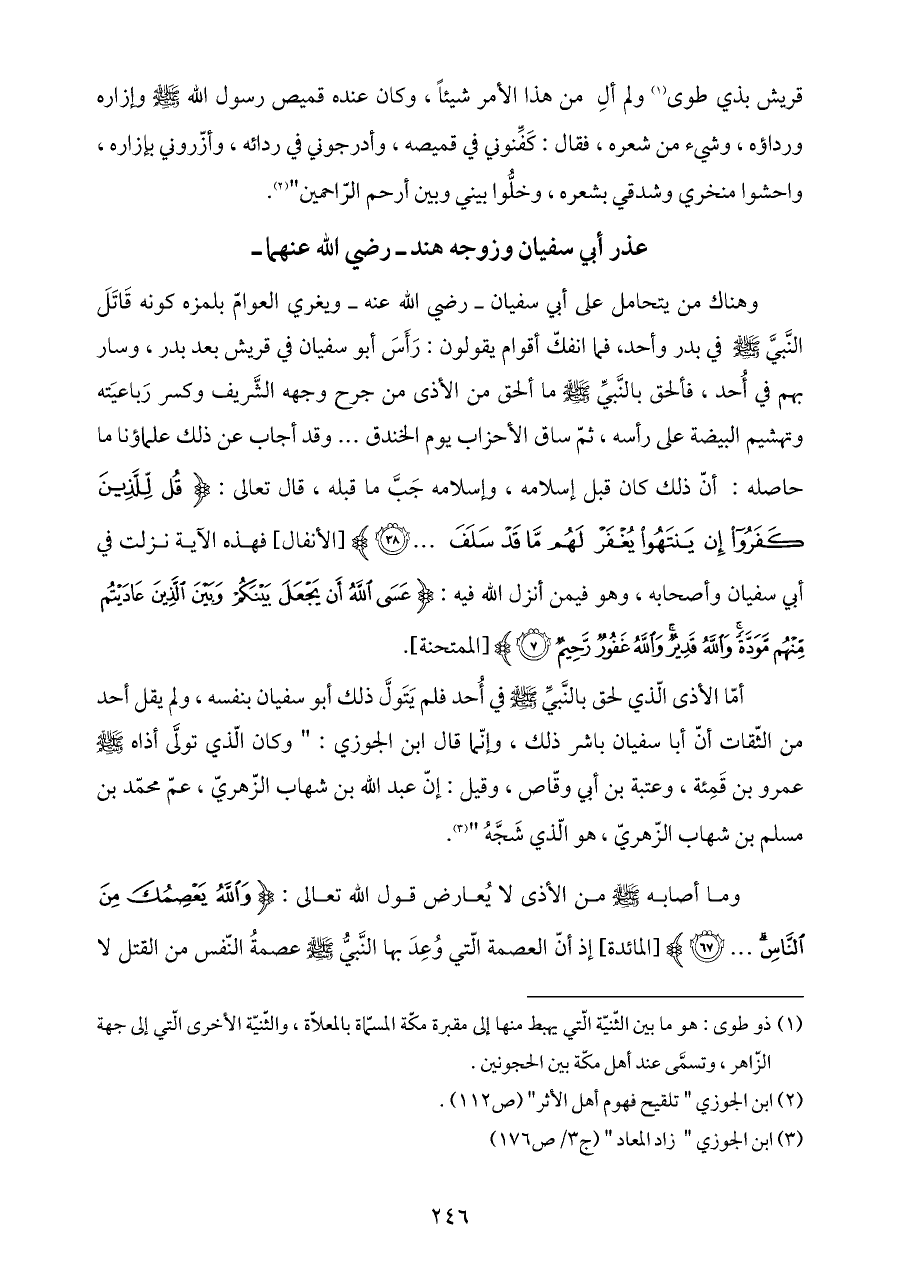 قريش بذي طوى(١) ولم ألِ من هذا الأمر شيئاً ، وكان عنده قميص رسول الله ﷺ وإزاره
ورداؤه ، وشيء من شعره ، فقال : كَفِّنوني في قميصه ، وأدرجوني في ردائه ، وأزّروني بإزاره ،
واحشوا منخري وشدقي بشعره ، وخلُّوا بيني وبين أرحم الرّاحمين"(٢).
عذر أبي سفيان وزوجه هند ـ رضي الله عنهما ـ
وهناك من يتحامل على أبي سفيان ـ رضي الله عنه ـ ويغري العوامّ بلمزه كونه قَاتَلَ
النَّبيَّ ﷺ في بدر وأحد، فما انفكّ أقوام يقولون : رَأَسَ أبو سفيان في قريش بعد بدر ، وسار
بهم في أُحد ، فألحق بالنَّبيِّ ﷺ ما ألحق من الأذى من جرح وجهه الشَّريف وكسر رَباعيَته
وتهشيم البيضة على رأسه ، ثمّ ساق الأحزاب يوم الخندق ... وقد أجاب عن ذلك علماؤنا ما
حاصله : أنّ ذلك كان قبل إسلامه ، وإسلامه جَبَّ ما قبله ، قال تعالى : ﴿ قُل لِّلَّذِينَ
كَفَرُوٓاْ إِن يَنتَهُواْ يُغۡفَرۡ لَهُم مَّا قَدۡ سَلَفَ ... ٣٨ ﴾ [الأنفال] فهـذه الآيـة نـزلت في
أبي سفيان وأصحابه ، وهو فيمن أنزل الله فيه : ﴿ عَسَى ٱللَّهُ أَن يَجۡعَلَ بَيۡنَكُمۡ وَبَيۡنَ ٱلَّذِينَ عَادَيۡتُم
مِّنۡهُم مَّوَدَّةٗۚ وَٱللَّهُ قَدِيرٞۚ وَٱللَّهُ غَفُورٞ رَّحِيمٞ ٧ ﴾ [الممتحنة].
أمّا الأذى الّذي لحق بالنَّبيِّ ﷺ في أُحد فلم يَتَولَّ ذلك أبو سفيان بنفسه ، ولم يقل أحد
من الثّقات أنّ أبا سفيان باشر ذلك ، وإنّما قال ابن الجوزي : " وكان الّذي تولَّى أذاه ﷺ
عمرو بن قَمِئة ، وعتبة بن أبي وقّاص ، وقيل : إنّ عبد الله بن شهاب الزّهريّ ، عمّ محمّد بن
مسلم بن شهاب الزّهريّ ، هو الّذي شَجَّهُ "(٣).
ومـا أصابـه ﷺ مـن الأذى لا يُعـارض قـول الله تعـالى : ﴿ وَٱللَّهُ يَعۡصِمُكَ مِنَ
ٱلنَّاسِۗ ... ٦٧ ﴾ [المائدة] إذ أنّ العصمة الّتي وُعِدَ بها النَّبيُّ ﷺ عصمةُ النّفس من القتل لا
(١) ذو طوى : هو ما بين الثّنيّة الّتي يهبط منها إلى مقبرة مكّة المسمّاة بالمعلاّة ، والثّنيّة الأخرى الّتي إلى جهة
الزّاهر ، وتسمَّى عند أهل مكّة بين الحجونين .
(٢) ابن الجوزي " تلقيح فهوم أهل الأثر" (ص١١٢) .
(٣) ابن الجوزي " زاد المعاد " (ج٣/ ص١٧٦)
٢٤٦